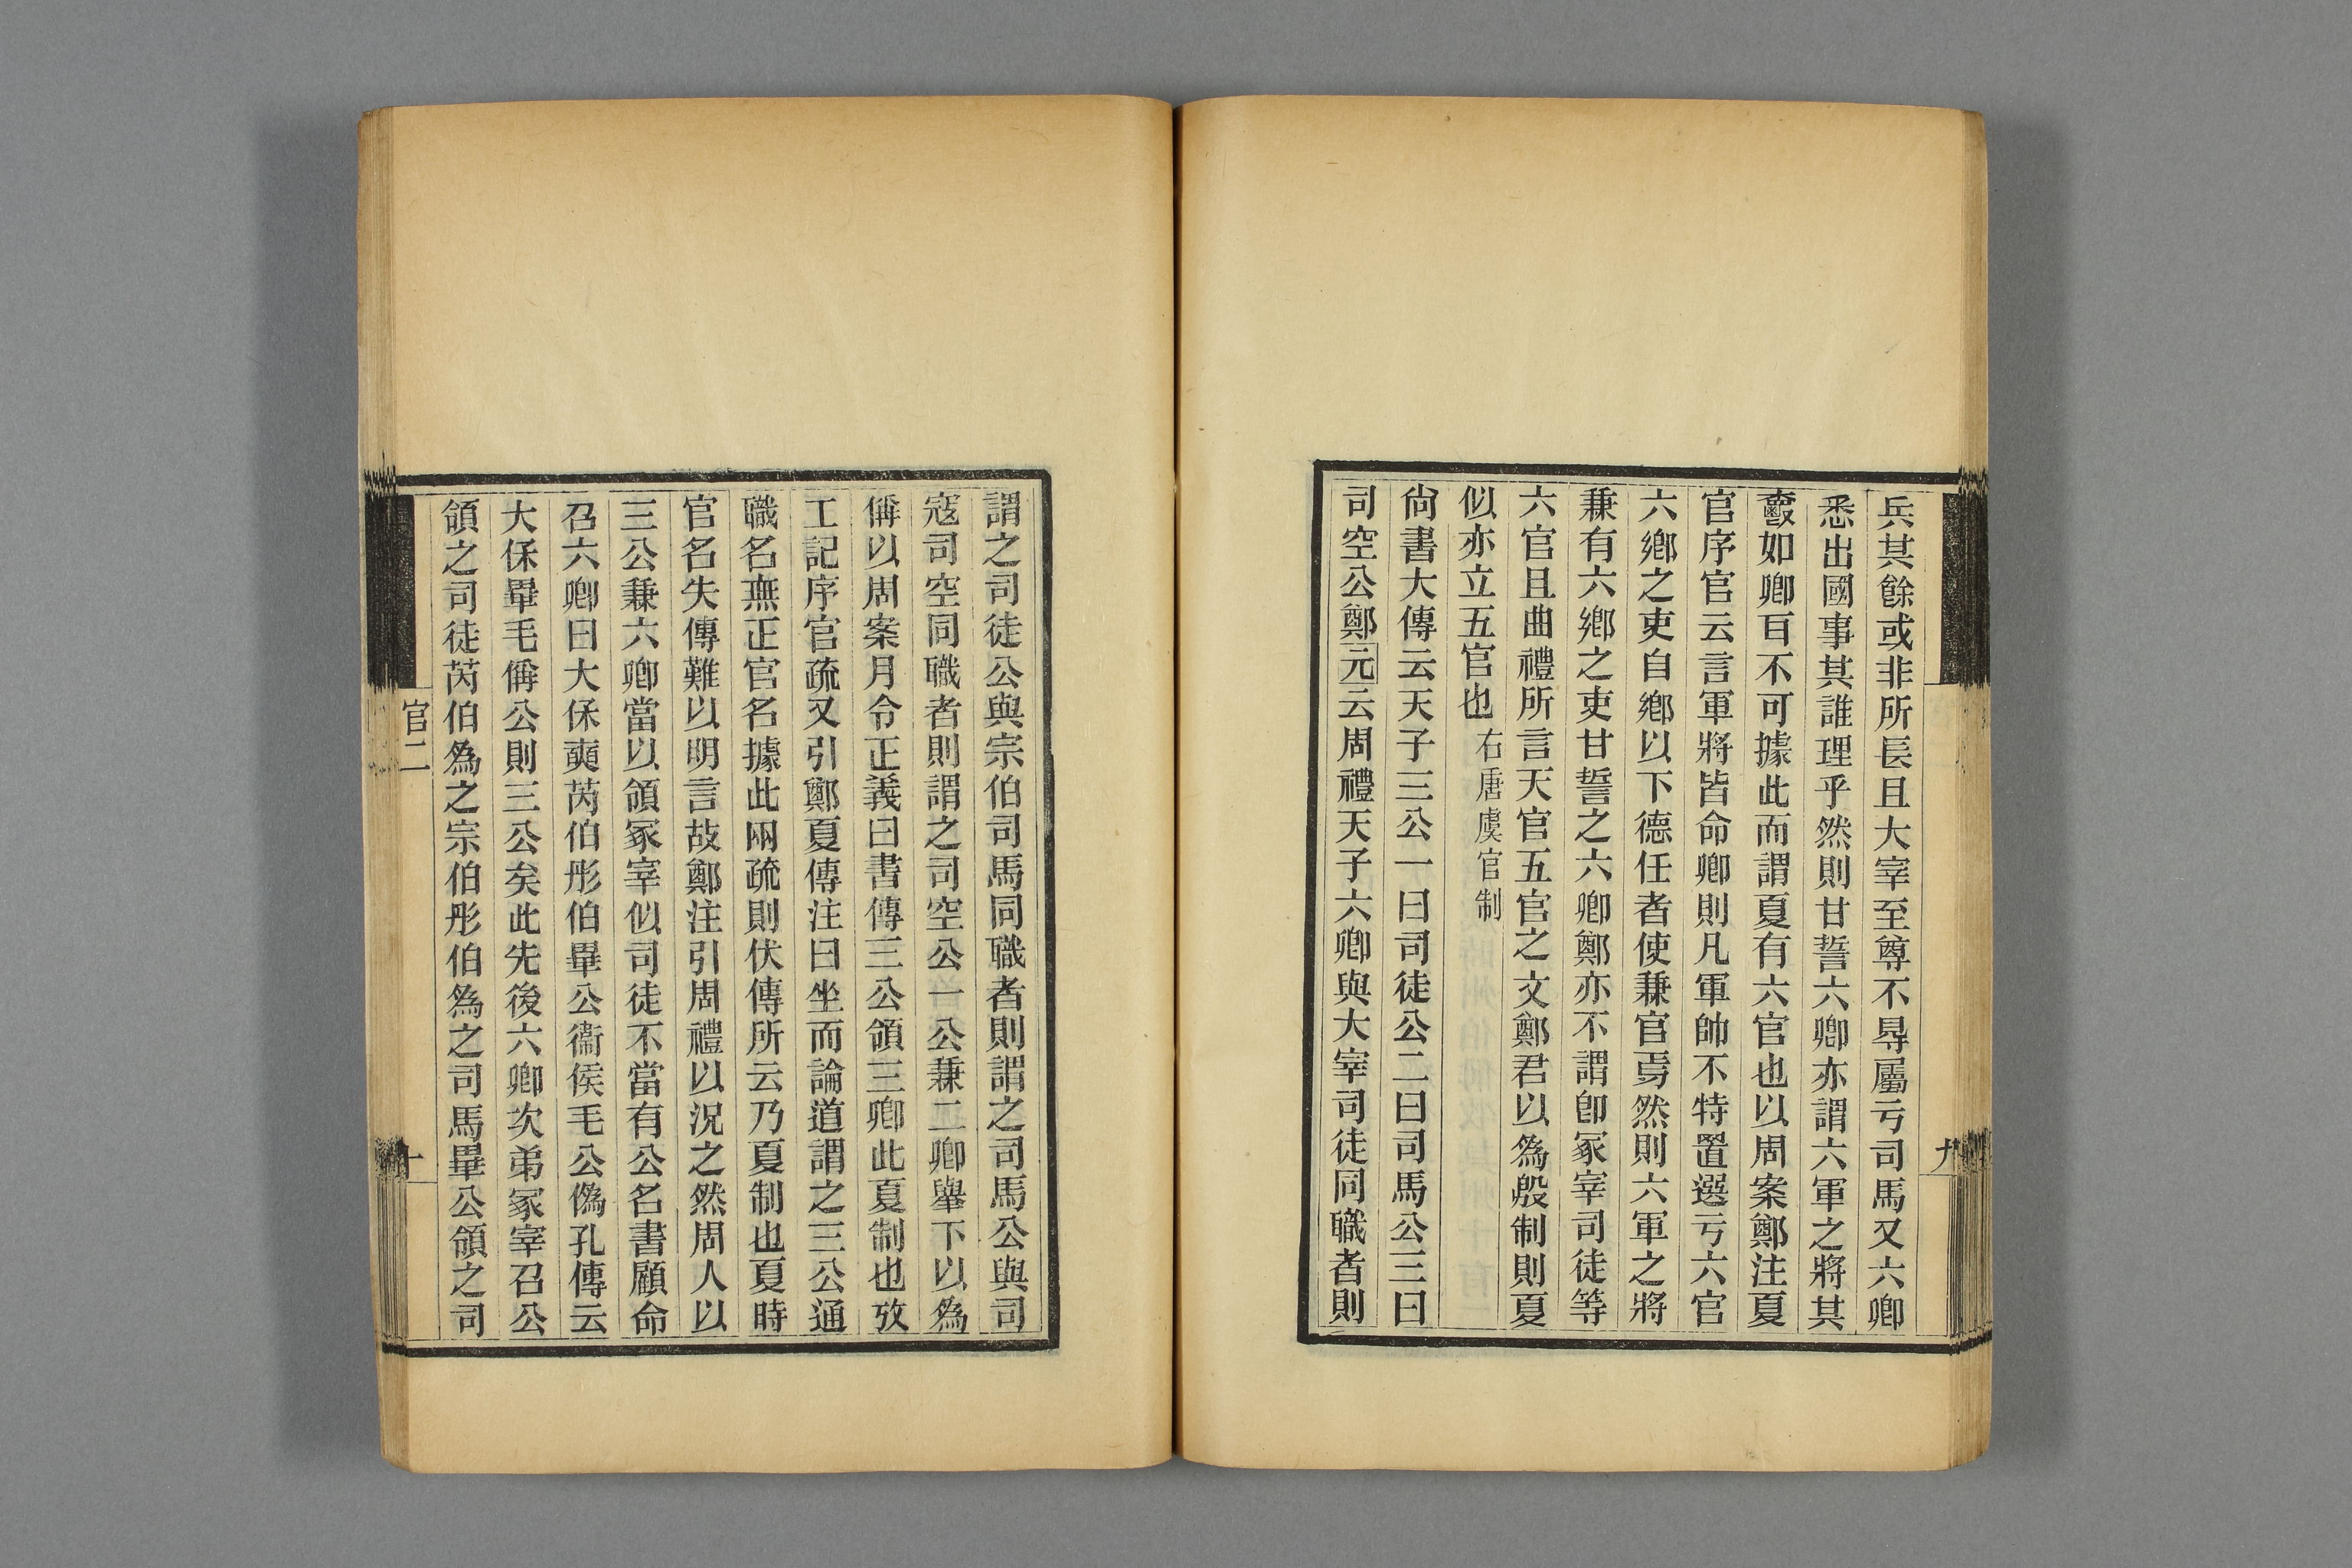 兵其餘或非所長且大宰至尊不䙷屬亏司馬又六卿
悉出國事其誰理乎然則甘誓六卿亦謂六軍之將其
爵如卿耳不可據此而謂夏有六官也以周案鄭注夏
官序官云言軍將皆命卿則凡軍帥不特置選亏六官
六鄉之吏自鄉以下德任者使兼官焉然則六軍之將
兼有六鄉之吏甘誓之六卿鄭亦不謂卽冢宰司徒等
六官且曲禮所言天官五官之文鄭君以為殷制則夏
似亦立五官也右唐虞官制
尙書大傳云天子三公一曰司徒公二曰司馬公三曰
司空公鄭元云周禮天子六卿與大宰司徒同職者則
謂之司徒公與宗伯司馬同職者則謂之司馬公與司
寇司空同職者則謂之司空公一公兼二卿舉下以為
偁以周案月令正義曰書傳三公領三卿此夏制也攷
工記序官疏又引鄭夏傳注曰坐而論道謂之三公通
職名無正官名據此兩疏則伏傳所云乃夏制也夏時
官名失傳難以明言故鄭注引周禮以況之然周人以
三公兼六卿當以領冢宰似司徒不當有公名書顧命
召六卿曰大保奭芮伯彤伯畢公衞侯毛公僞孔傳云
大保畢毛偁公則三公矣此先後六卿次弟冢宰召公
領之司徒芮伯為之宗伯彤伯為之司馬畢公領之司
官二
十
九